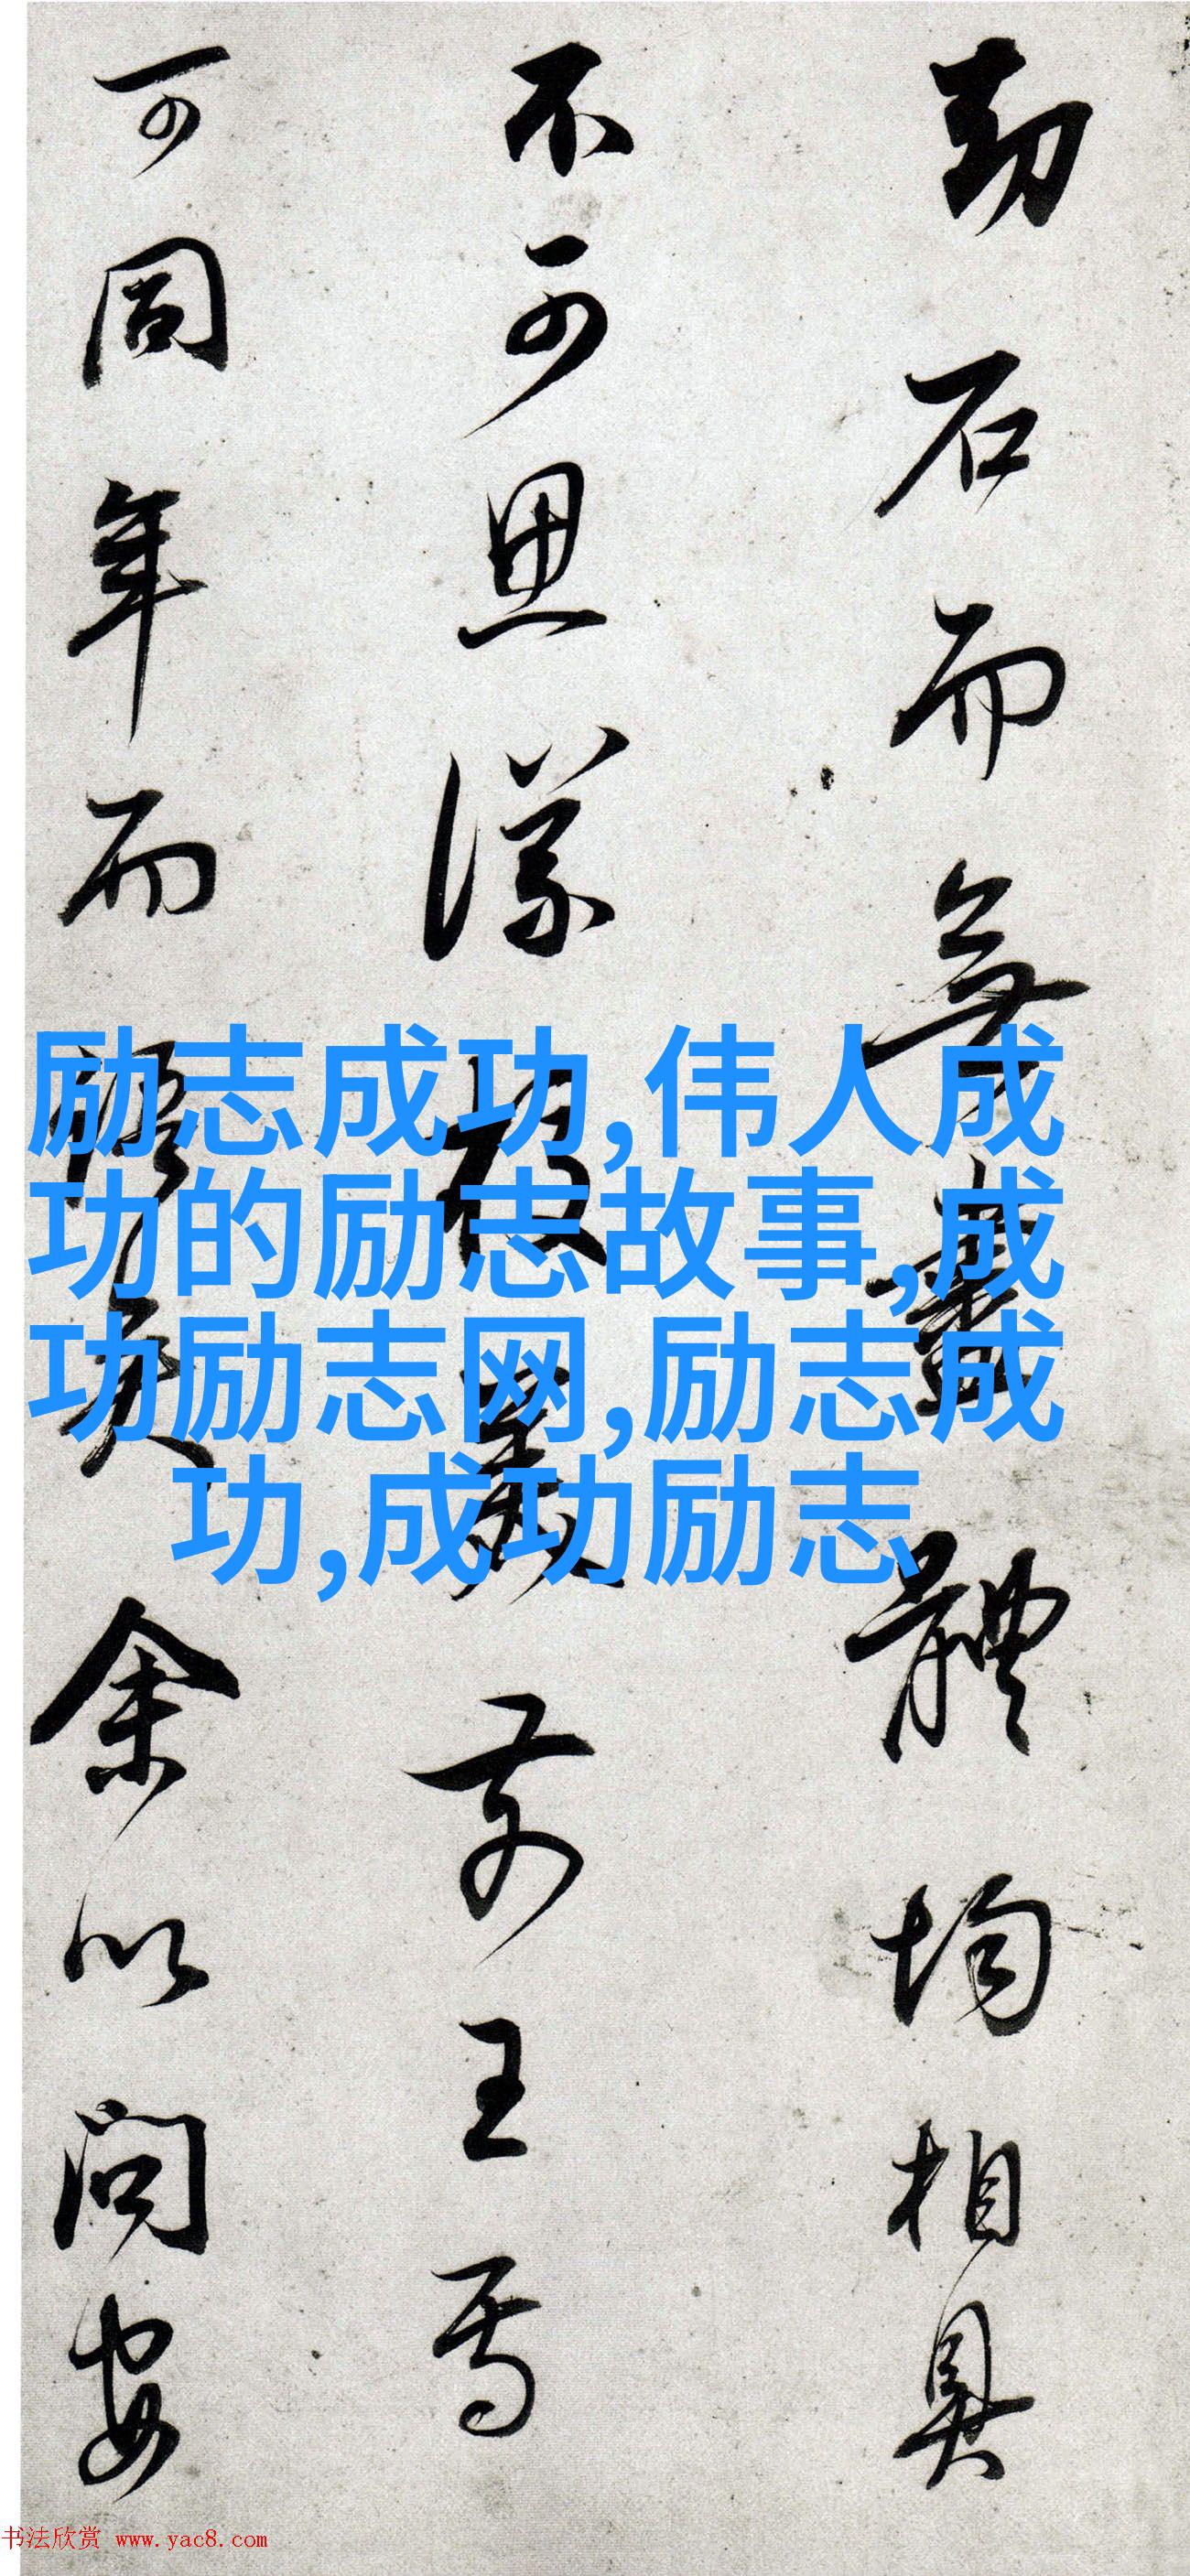 劫石而無盡體均相具
不可思議前王焉
可同年而語矣余以問安
励志成功,伟人成
功的励志故事,成
功励志网,励志成
功,成功励志
书法欣赏 www.yac8.com